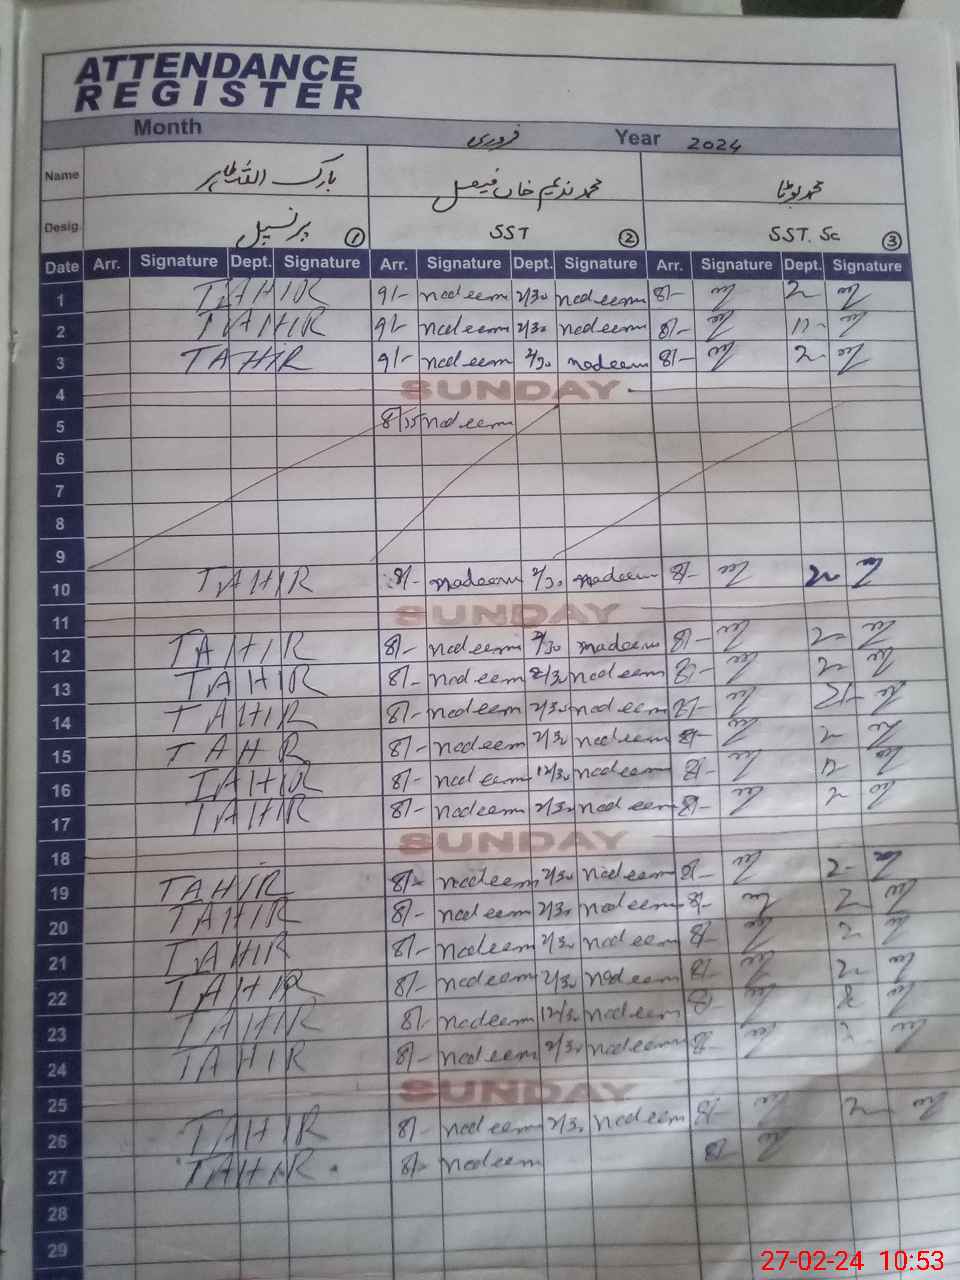 ATTENDANCE
REGISTER
Month فروری Year 2024
Name بارک اللہ طاہر محمد ندیم خاں فیصل محمد بوٹا
Desig. پرنسپل ① SST ② SST. Sc ③
Date Arr. Signature Dept. Signature Arr. Signature Dept. Signature Arr. Signature Dept. Signature
1 TAHIR 9/- nadeem 2/30 nadeem 8/- 2-
2 TAHIR 9/- nadeem 2/30 nadeem 8/- 12-
3 TAHIR 9/- nadeem 2/30 nadeem 8/- 2-
4 SUNDAY
5 8/15 nadeem
6
7
8
9
10 TAHIR 8/- nadeem 2/30 nadeem 8/- 2-
11 SUNDAY
12 TAHIR 8/- nadeem 2/30 nadeem 8/- 2-
13 TAHIR 8/- nadeem 2/30 nadeem 8/- 2-
14 TAHIR 8/- nadeem 2/30 nadeem 8/-
15 TAHIR 8/- nadeem 2/30 nadeem 8/- 2-
16 TAHIR 8/- nadeem 12/30 nadeem 8/- 12-
17 TAHIR 8/- nadeem 2/30 nadeem 8/- 2-
18 SUNDAY
19 TAHIR 8/- nadeem 2/30 nadeem 8/- 2-
20 TAHIR 8/- nadeem 2/30 nadeem 8/- 2-
21 TAHIR 8/- nadeem 2/30 nadeem 8/- 2-
22 TAHIR 8/- nadeem 2/30 nadeem 8/- 2-
23 TAHIR 8/- nadeem 12/30 nadeem 8/-
24 TAHIR 8/- nadeem 2/30 nadeem 8/- 2-
25 SUNDAY
26 TAHIR 8/- nadeem 2/30 nadeem 8/- 2-
27 TAHIR 8/- nadeem 8/-
28
29
27-02-24 10:53